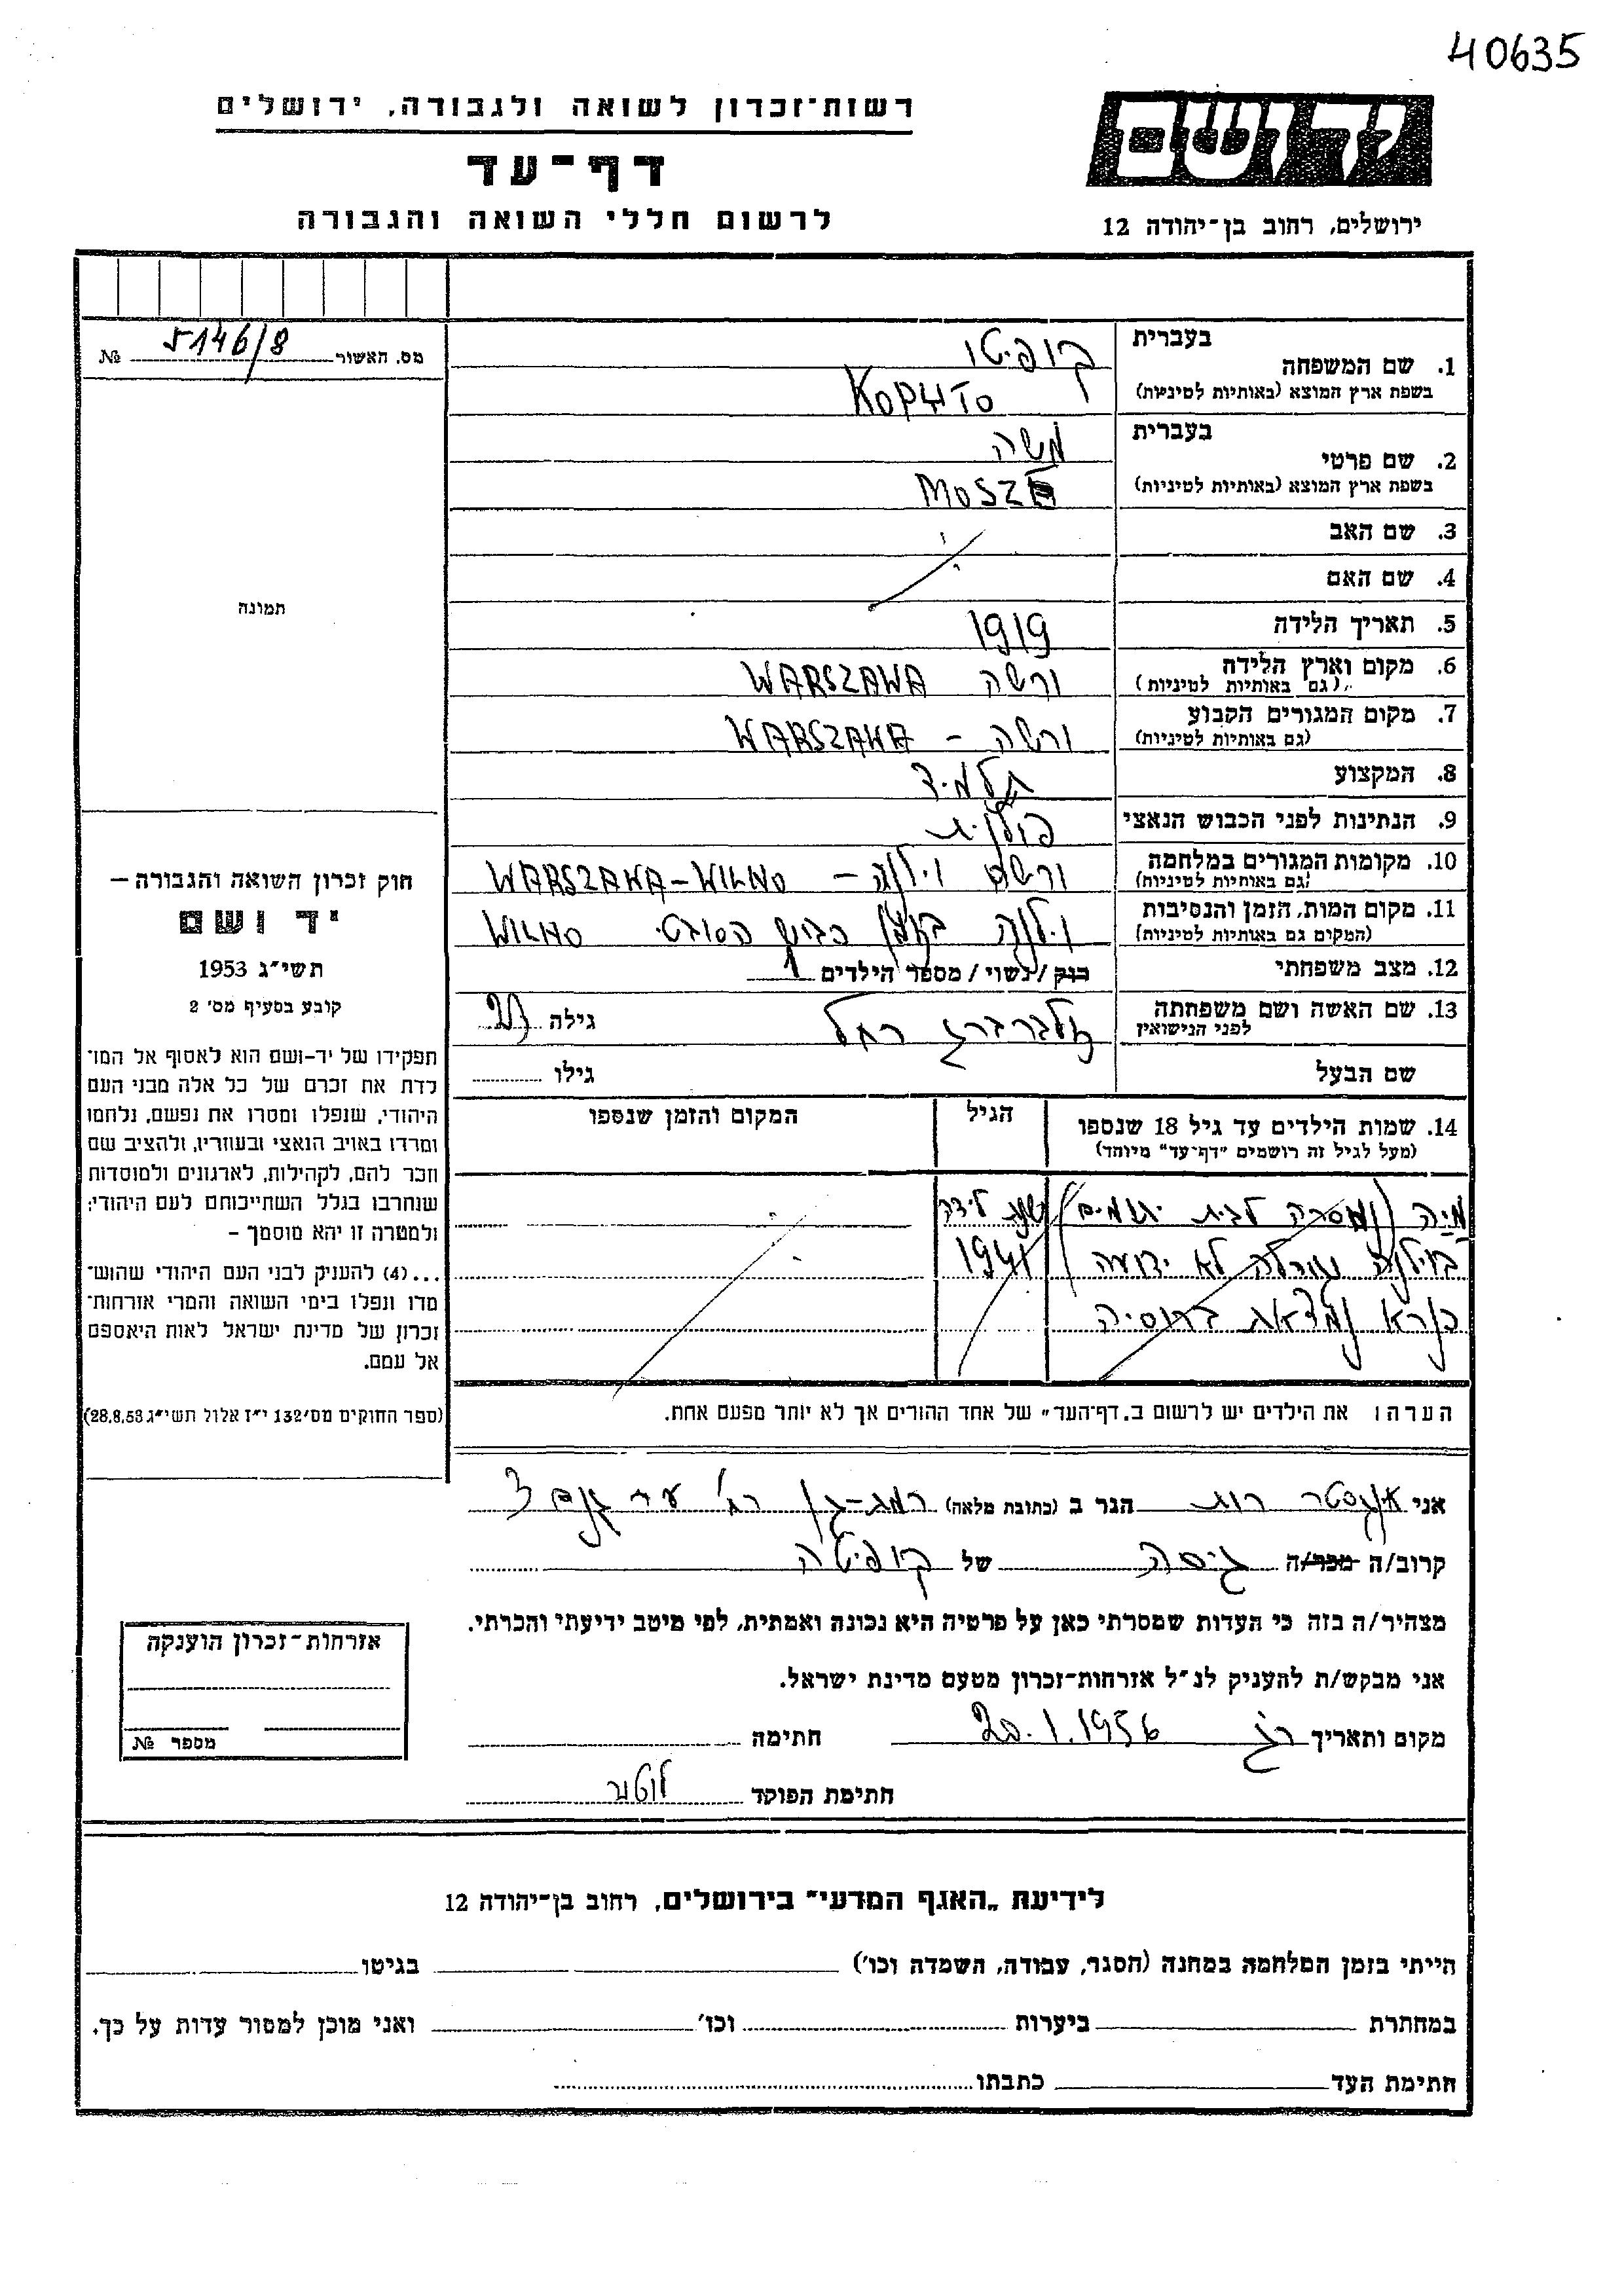 40635
רשות־זכרון לשואה ולגבורה, ירושלים
דף־עד
לרשום חללי השואה והגבורה
יד ושם
ירושלים, רחוב בן־יהודה 12
מס. האשור 5146/8 №
בעברית
1. שם המשפחה קופיטו
בשפת ארץ המוצא (באותיות לטיניות) KOPYTO
בעברית
2. שם פרטי משה
בשפת ארץ המוצא (באותיות לטיניות) MOSZE
3. שם האב
4. שם האם
5. תאריך הלידה 1919
6. מקום וארץ הלידה ורשה WARSZAWA
(גם באותיות לטיניות)
7. מקום המגורים הקבוע ורשה – WARSZAWA
(גם באותיות לטיניות)
8. המקצוע תלמיד
9. הנתינות לפני הכבוש הנאצי פולנית
10. מקומות המגורים במלחמה ורשה וילנה – WARSZAWA–WILNO
(גם באותיות לטיניות)
11. מקום המות, הזמן והנסיבות וילנה בזמן כבוש הסובטי WILNO
(המקום גם באותיות לטיניות)
12. מצב משפחתי רווק / נשוי / מספר הילדים 1
13. שם האשה ושם משפחתה זילברברג רחל גילה 23
לפני הנישואין
שם הבעל גילו
תמונה
14. שמות הילדים עד גיל 18 שנספו הגיל המקום והזמן שנספו
(מעל לגיל זה רושמים "דף־עד" מיוחד)
מיה (נמסרה לבית יתומים) שנת לידה
בוילנה גורלה לא ידועה 1941
כנרא נמצאת ברוסיה
הערה: את הילדים יש לרשום ב„דף־העד" של אחד ההורים אך לא יותר מפעם אחת.
חוק זכרון השואה והגבורה —
יד ושם
תשי״ג 1953
קובע בסעיף מס׳ 2
תפקידו של יד־ושם הוא לאסוף אל המו־
לדת את זכרם של כל אלה מבני העם
היהודי, שנפלו ומסרו את נפשם, נלחמו
ומרדו באויב הנאצי ובעוזריו, ולהציב שם
וזכר להם, לקהילות, לארגונים ולמוסדות
שנחרבו בגלל השתייכותם לעם היהודי;
ולמטרה זו יהא מוסמך –
...(4) להעניק לבני העם היהודי שהוש־
מדו ונפלו בימי השואה והמרי אזרחות־
זכרון של מדינת ישראל לאות היאספם
אל עמם.
(ספר החוקים מס׳ 132 י״ז אלול תשי״ג 28.8.53)
אני רות הגר ב (כתובת מלאה) רמת–גן רח׳ 3
קרוב/ה מכר/ה גיסה של קופיטה
מצהיר/ה בזה כי העדות שמסרתי כאן על פרטיה היא נכונה ואמתית, לפי מיטב ידיעתי והכרתי.
אני מבקש/ת להעניק לנ״ל אזרחות־זכרון מטעם מדינת ישראל.
מקום ותאריך רג 20.1.1956 חתימה
חתימת הפוקד
אזרחות־זכרון הוענקה
מספר №
לידיעת „האגף המדעי" בירושלים, רחוב בן־יהודה 12
הייתי בזמן המלחמה במחנה (הסגר, עבודה, השמדה וכו׳) בגיטו
במחתרת ביערות וכו׳ ואני מוכן למסור עדות על כך.
חתימת העד כתבתו